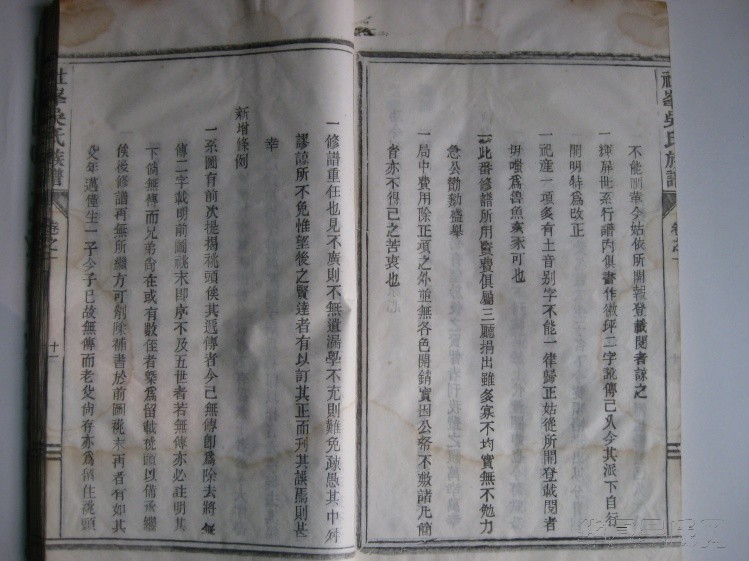 社峯吳氏族譜
卷之一
不能劃華今姑依所開報登載閱者諒之
一 坪屏世系行譜內俱書作徽坪二字訛傳已久今其派下自行
開明特為改正
一 祀產一項多有土音別字不能一律歸正姑從所開登載閱者
切嗤為魯魚亥豕可也
一 此番修譜所用資費俱屬三廳捐出雖多寡不均實無不勉力
急公勷勷盛舉
一 局中費用除正項之外並無各色開銷實因公帑不敷諸凡簡
省亦不得已之苦衷也
一 修譜重任也見不廣則不無遺漏學不充則難免疎愚其中舛
謬諒所不免惟望後之賢達者有以訂其正而刊其誤焉則甚
幸
新增條例
一 系圖有前次提揭祧頭俟其遞傳者今已無傳即為除去將無
傳二字載明前圖祧末即序不及五世者若無傳亦必註明其
下倘無傳而兄弟尚在或有數侄者槩為留載祧頭以備承繼
俟後修譜再無所繼方可刪除補書於前圖祧末再者有如其
父年邁僅生一子今子已故無傳而老父尚存亦為留住祧頭
社峯吳氏族譜
卷之一
十一